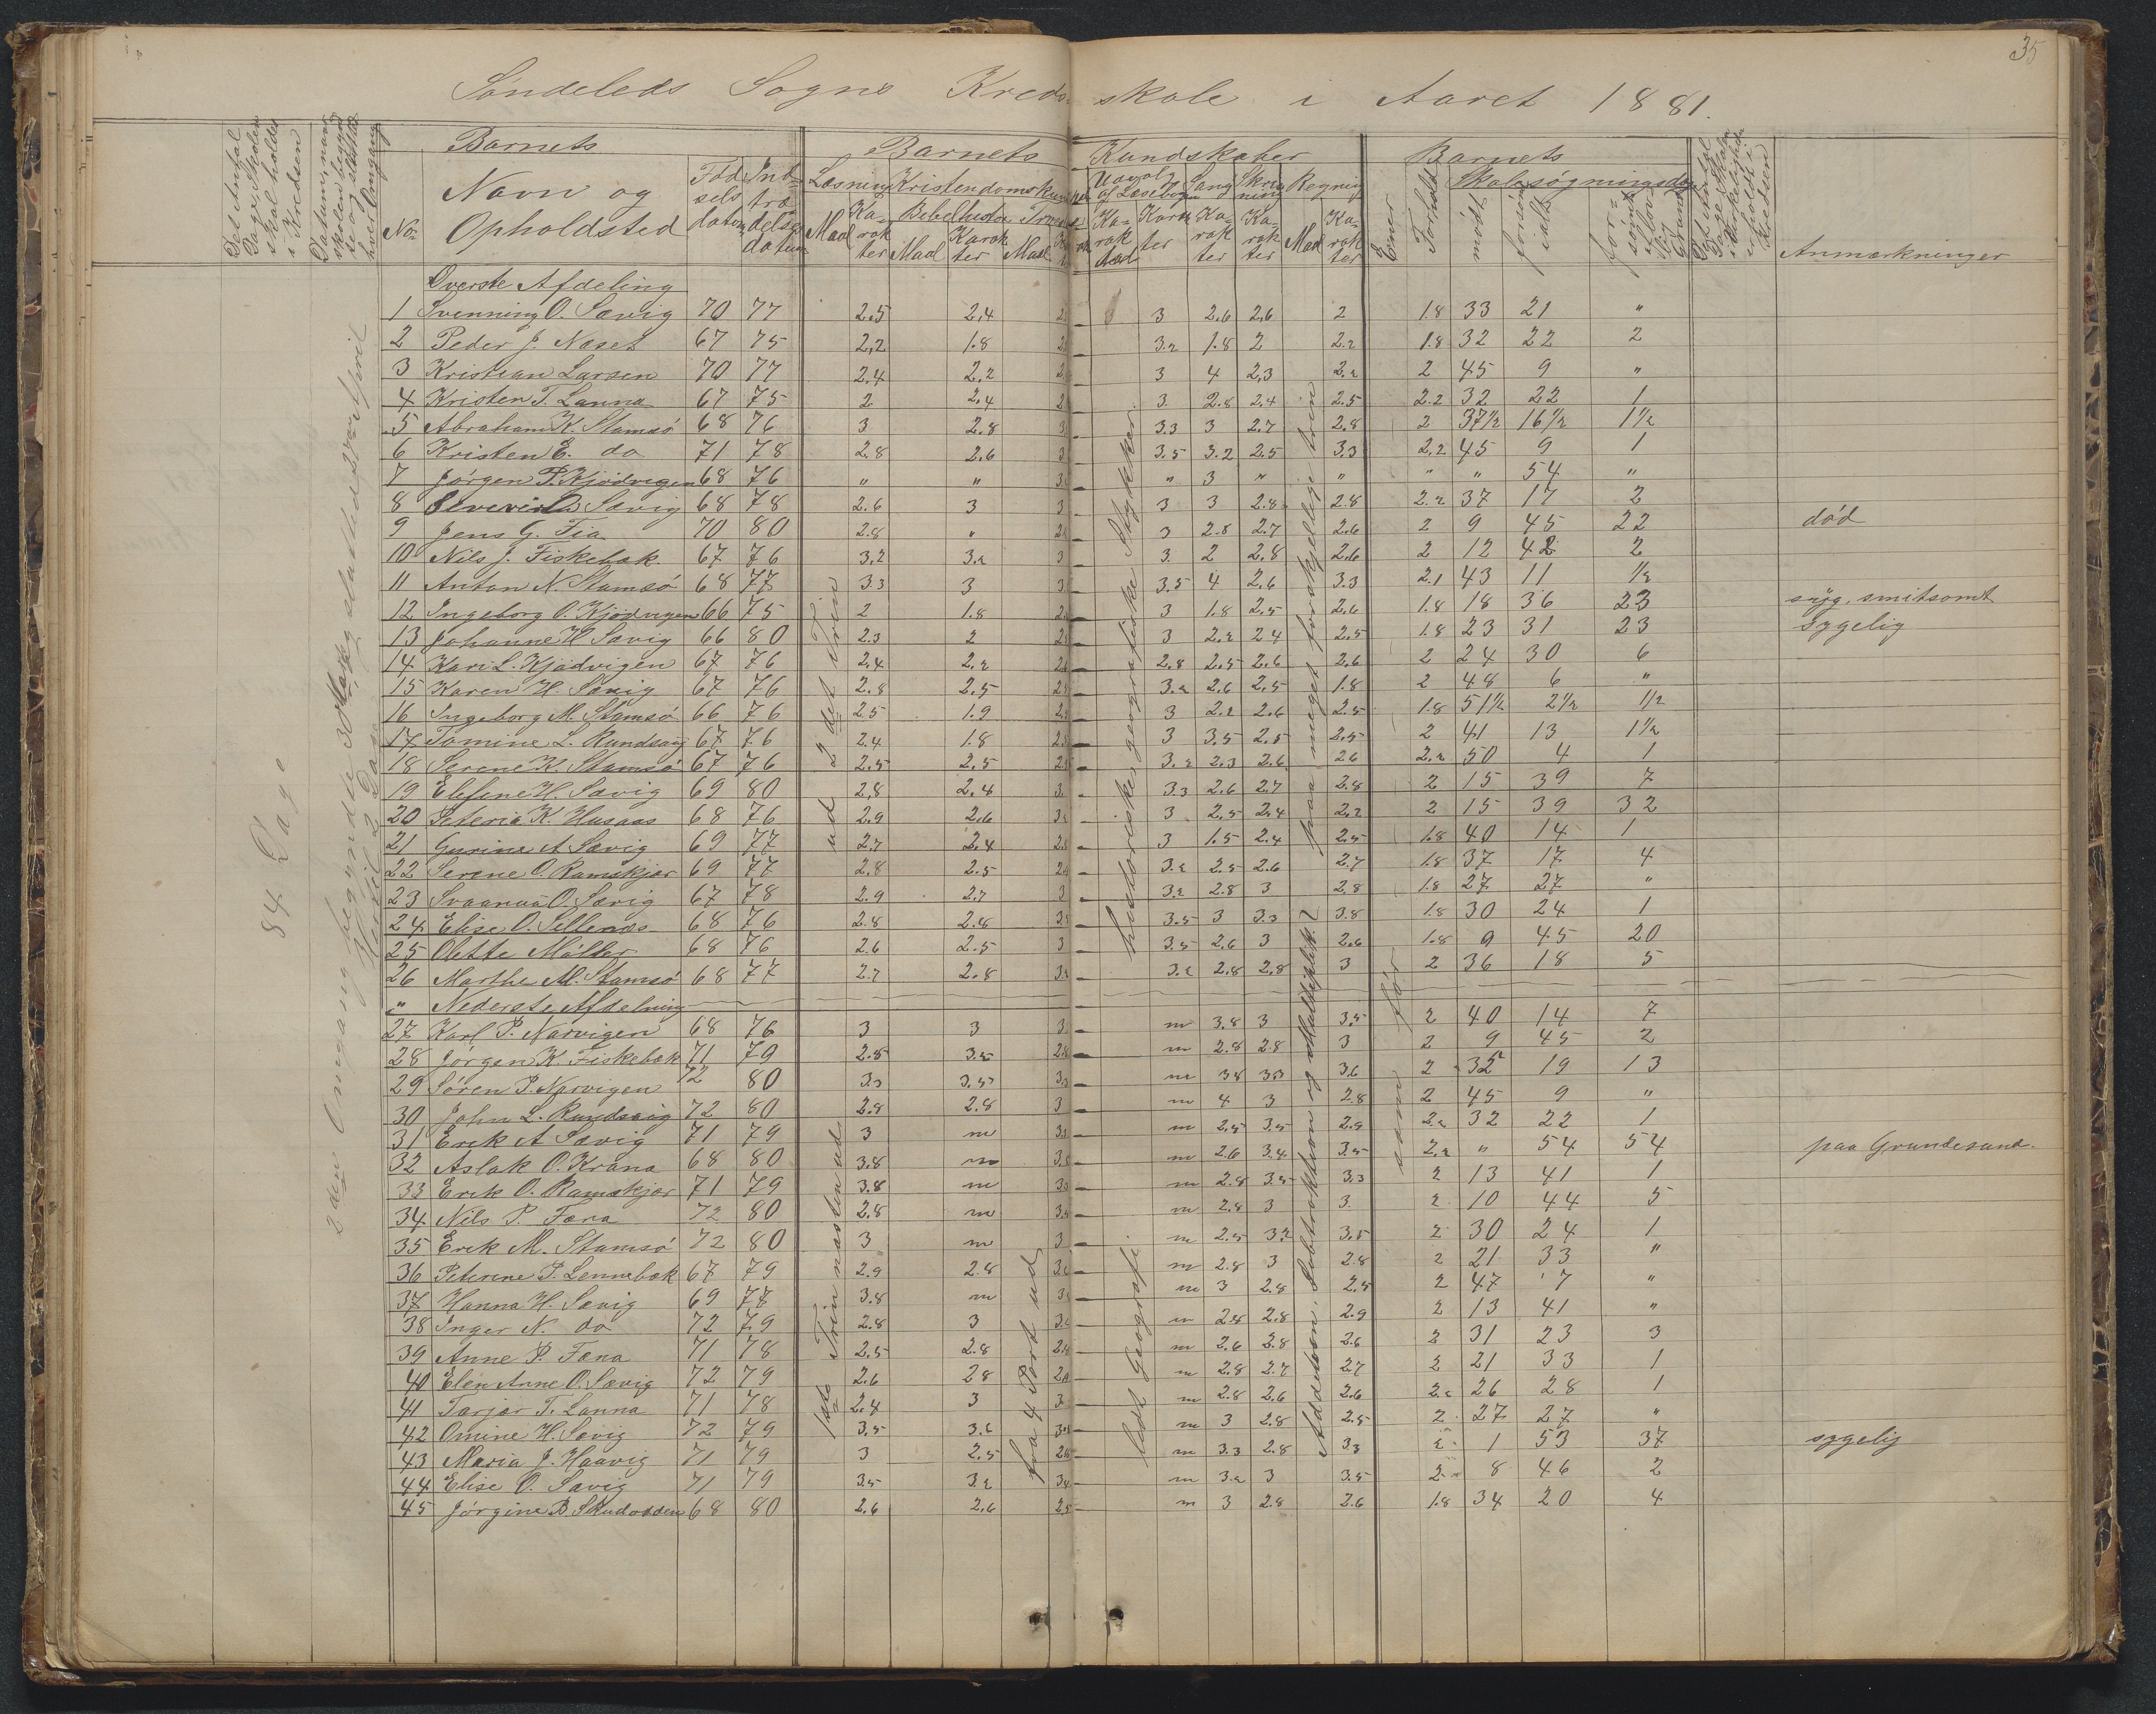 35
Søndeleds Sogns Kredsskole i Aaret 1881.
Det Antal Dage Skolen skal holdes i Kredsen
Datum, naar skolen begyndte og sluttede hver Omgang
No
Barnets
Navn og Opholdsted
Fødselsdatum
Indtrædelsesdatum
Barnets Kundskaber
Læsning Maal Karakter
Kristendomskundskab
Bibelhistorie Maal Karakter Maal
Udvalg af Læsebogen
Sang Karakter
Skrivning Karakter
Regning Maal Karakter
Evner
Forhold
Barnets Skolesøgningsdage
mødt
forsømt ialt
forsømt af lovl. Grund
Det Antal Dage Skolen i Virkeligheden er holdt i Kredsen
Anmærkninger
Øverste Afdeling
1 Svenning O. Sævig 70 77 2,5 2,4 3 2,6 2,6 2 1.8 33 21 "
2 Peder J. Næset 67 75 2,2 1.8 3.2 1.8 2 2.2 1.8 32 22 2
3 Kristian Larsen 70 77 2,4 2,2 3 4 2,3 2.2 2 45 9 "
4 Kristen T. Lanna 67 75 2 2,4 3 2.8 2.4 2.5 2.2 32 22 1
5 Abraham K. Stamsø 68 76 3 2.8 3.3 3 2.7 2.8 2 37½ 16½ 1½
6 Kristen E. do 71 78 2.8 2.6 3.5 3.2 2.5 3.3 2.2 45 9 1
7 Jørgen P. Kjødvigen 68 76 " " " 3 " " " " 54 "
8 Sævig 68 78 2.6 3 3 3 2.8 2.8 2.2 37 17 2
9 Jens G. Fia 70 80 2.8 " 3 2.8 2.7 2.6 2 9 45 22 død
10 Nils J. Fiskebæk. 67 76 3,2 3.2 3 2 2,8 2.6 2 12 42 2
11 Anton N. Stamsø 68 77 3.3 3 3.5 4 2,6 3.3 2.1 43 11 ½
12 Ingeborg O. Kjødvigen 66 75 2 1.8 3 1.8 2.5 2.6 1.8 18 36 23 syg. smitsomt
13 Johanne H Sævig 66 80 2.3 2 3 2.2 2.4 2.5 1.8 23 31 23 sygelig
14 Kari L. Kjødvigen 67 76 2,4 2,2 2.8 2.5 2.6 2,6 2 24 30 6
15 Karen H. Sævig 67 76 2.8 2.5 3.2 2.6 2.5 1.8 2 48 6 "
16 Ingeborg M. Stamsø 66 76 2.5 1.9 3 2.2 2.6 2.5 1.8 51½ 2½ ½
17 Tomine L. Rundsaig 67 76 2.4 1.8 3 3.5 2.5 2.5 2 41 13 1½
18 Serene K. Stamsø 67 76 2.5 2.5 3.2 2.3 2.6 26 2.2 50 4 1
19 Elefine H. Sævig 69 80 2,8 2,4 3.3 2.6 2.7 2.8 2 15 39 7
20 Peteria K. Husaas 68 76 2.9 2.6 3 2.5 2.4 2.2 2 15 39 32
21 Gurine A Sævig 69 77 2.7 2.4 3 1.5 2.4 2.5 1.8 40 14 1
22 Serene O. Ramskjær 69 77 2.8 2.5 3.2 2.5 2.6 2.7 1.8 37 17 4
23 Svaanua O. Sævig 67 78 2.9 2.7 3.2 2.8 3 2.8 1.8 27 27 "
24 Elise O. Sellenæs 68 76 2.8 2.8 3.5 3 3.3 3.8 1.8 30 24 1
25 Olette Møller 68 76 2.6 2.5 3.5 2.6 3 2.6 1.8 9 45 20
26 Marthe M. Stamsø 68 77 2.7 2.8 3.2 2.8 2.8 3 2 36 18 5
" Nederste Afdelning
27 Karl P. Narvigen 68 76 3 3 m 3.8 3 3.5 2 40 14 7
28 Jørgen K. Fiskebæk 71 79 2.8 3.5 m 2.8 2.8 3 2 9 45 2
29 Søren P. Narvigen 72 80 3.3 3.5 m 3.8 3.3 3.6 2 35 19 13
30 John L. Rundsaig 72 80 2.8 2.8 m 4 3 2.8 2 45 9 "
31 Erik A Sævig 71 79 3 m m 2.5 3.5 2.9 2.2 32 22 1
32 Aslak O. Krana 68 80 3.8 m m 2.6 3.4 3.5 2.2 " 54 54 paa Grundesund.
33 Erik O. Ramskjær 71 79 3.8 m m 2.8 3.5 3.3 2 13 41 1
34 Nils P. Fæna 72 80 2.8 m m 2.8 3 3. 2 10 44 5
35 Erik M. Stamsø 72 80 3 m m 2.5 3.2 3.5 2 30 24 1
36 Peterine P. Lennebæk 67 79 2.9 2.8 m 2.8 3 2.8 2 21 33 "
37 Hanna H. Sævig 69 77 3.8 m m 3 2.8 2.5 2 47 7 "
38 Inger N. do 72 79 2.8 3 m 2.8 2.8 2.9 2 13 41 "
39 Anne P. Fæna 71 78 2.5 2.8 m 2.6 2.8 2.6 2 31 23 3
40 Elen Anne O. Sævig 72 79 2.6 2 8 m 2.8 2.7 2.7 2 21 33 1
41 Tarjer T. Lanna 71 78 2.4 3 m 2.8 2.6 2.6 2.2 26 28 1
42 Omine H. Sævig 72 79 3.5 3.6 m 3 2.8 2.5 2 27 27 "
43 Maria J. Haavig 71 79 3 2.5 m 3.3 2.8 3.3 2 1 53 37 sygelig
44 Elise O. Sævig 71 79 3.5 3.2 m 3.2 3 3.5 2 8 46 2
45 Jørgine B Skudodden 68 80 2.6 2.6 m 3 2.8 2.6 1.8 34 20 4
84 Dage
2den Omgang begyndte 30 Mars og sluttede 2den April
Hertil 2 Dage
ud 2det Trin
1ste Trin næsten ud
fra 4 Part ud
historiske, geografiske Stykker.
lidt Geografi.
paa meget forskjellige trin
Addition. Subtraktion og Multiplik.
som før